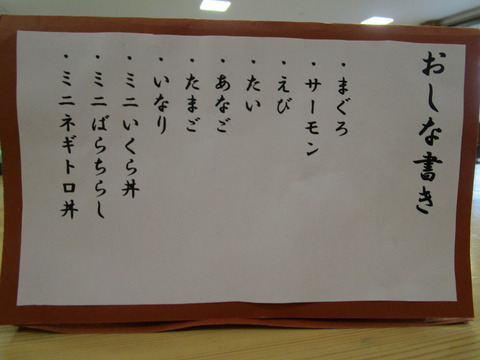 おしな書き
・まぐろ
・サーモン
・えび
・たい
・あなご
・たまご
・いなり
・ミニいくら丼
・ミニばらちらし
・ミニネギトロ丼